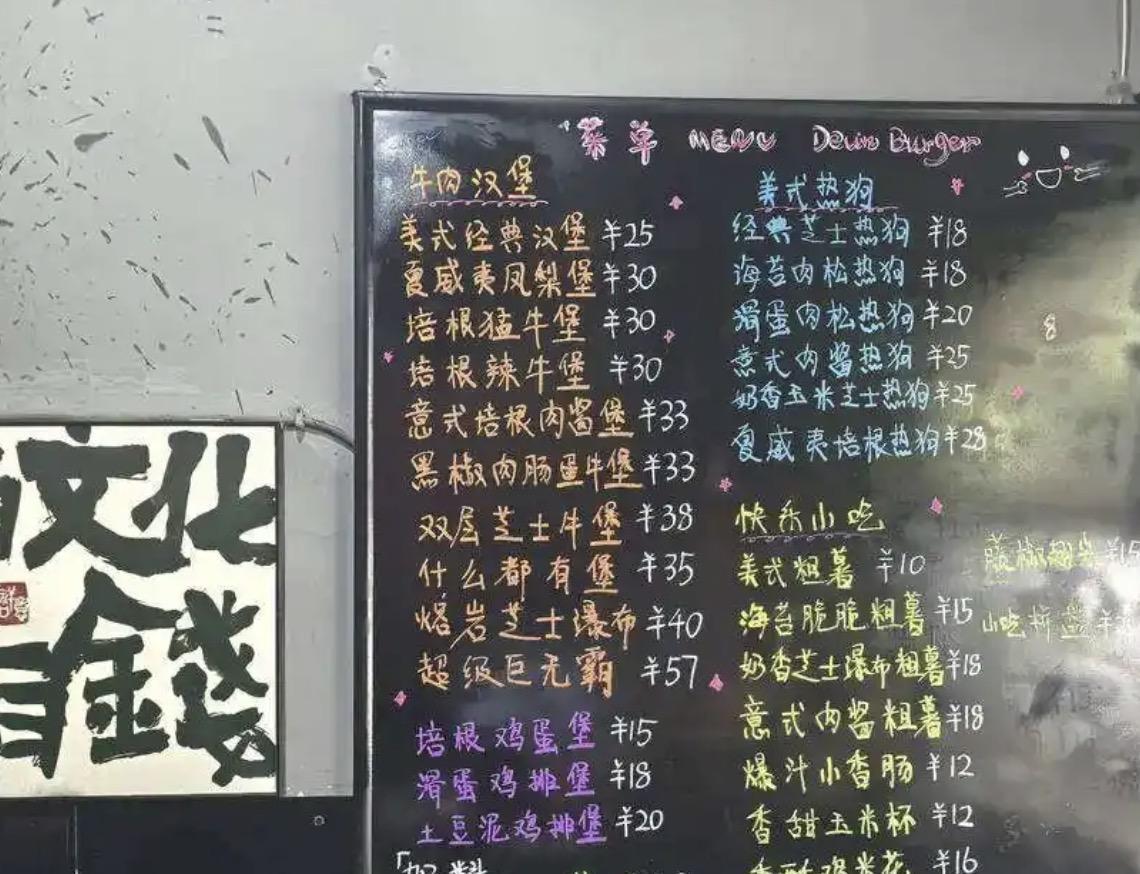 菜单 MENU Down Burger
牛肉汉堡
美式经典汉堡 ¥25
夏威夷凤梨堡 ¥30
培根猛牛堡 ¥30
培根辣牛堡 ¥30
意式培根肉酱堡 ¥33
黑椒肉肠蛋牛堡 ¥33
双层芝士牛堡 ¥38
什么都有堡 ¥35
熔岩芝士瀑布 ¥40
超级巨无霸 ¥57
培根鸡蛋堡 ¥15
滑蛋鸡排堡 ¥18
土豆泥鸡排堡 ¥20
「加料
美式热狗
经典芝士热狗 ¥18
海苔肉松热狗 ¥18
滑蛋肉松热狗 ¥20
意式肉酱热狗 ¥25
奶香玉米芝士热狗 ¥25
夏威夷培根热狗 ¥28
快乐小吃
美式粗薯 ¥10
海苔脆脆粗薯 ¥15
奶香芝士瀑布粗薯 ¥18
意式肉酱粗薯 ¥18
爆汁小香肠 ¥12
香甜玉米杯 ¥12
香酥鸡米花 ¥16
藤椒翅尖 ¥15
小吃拼盘
8
文化
有錢